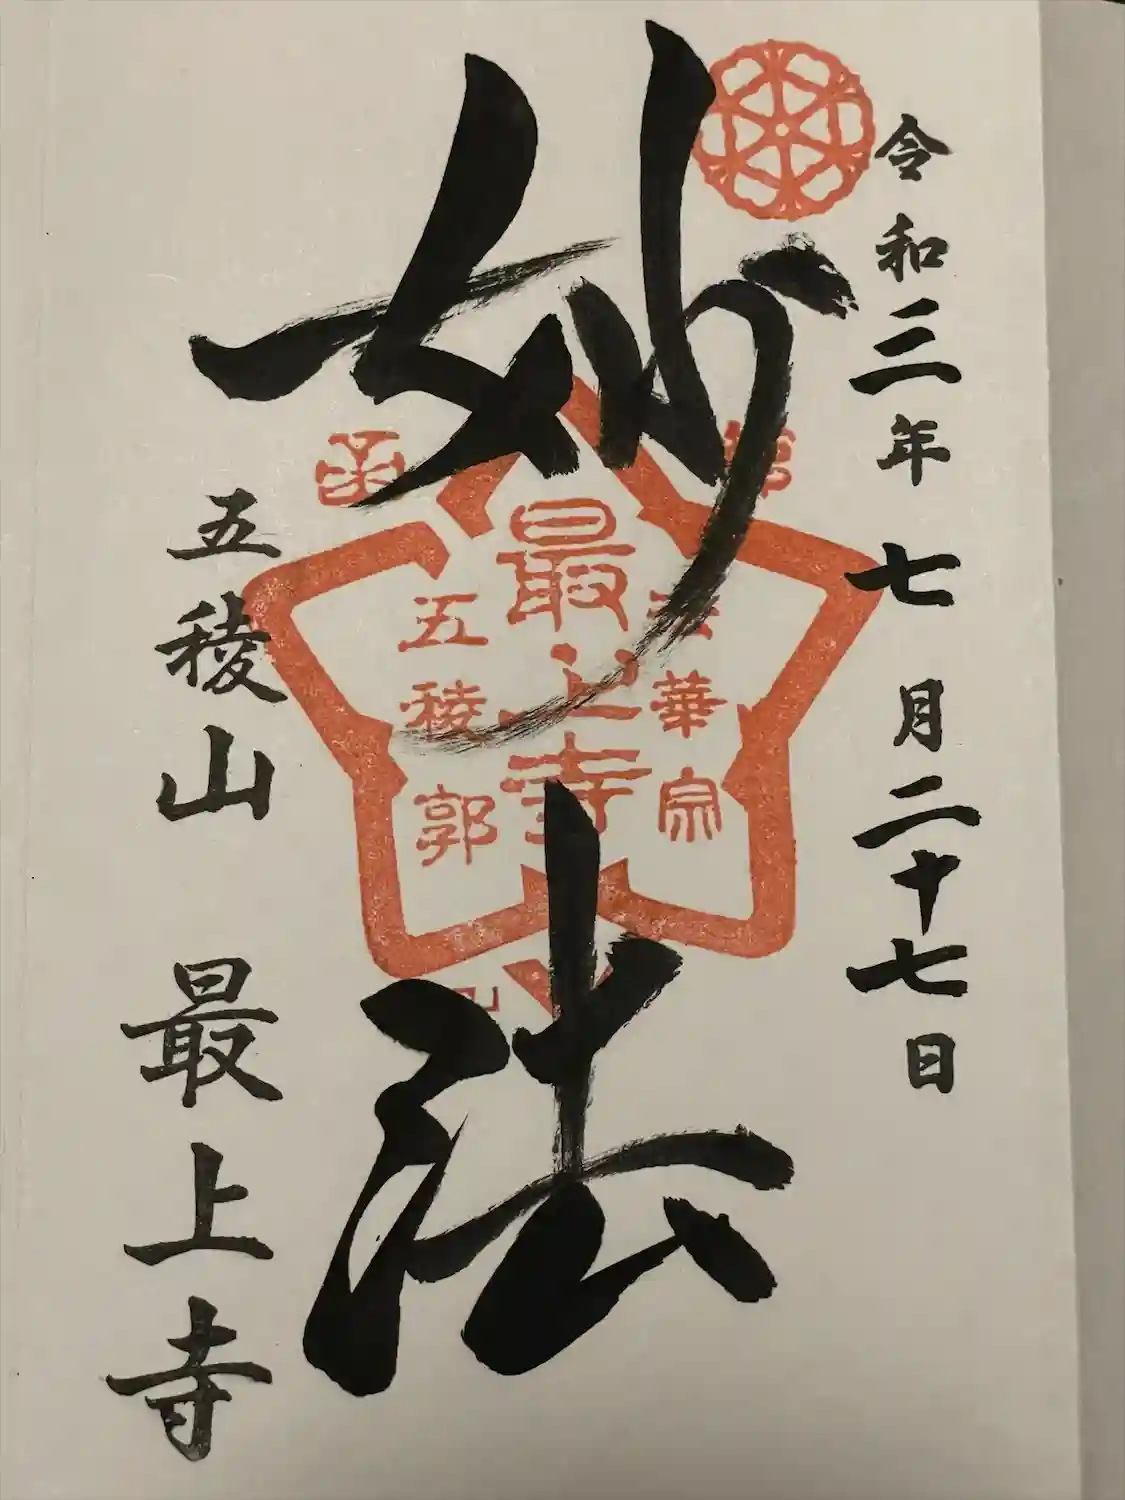 令和三年七月二十七日
妙法
華宗
最上寺
五稜郭
五稜山 最上寺